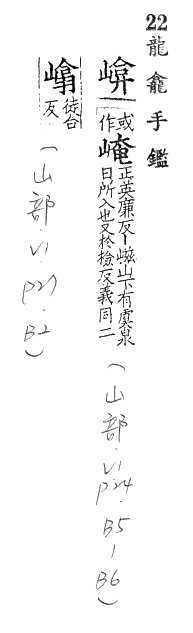 22 龍龕手鑑
或作崦正英廉反丨嵫山下有虞泉
日所入也又於檢反義同二
(山部.V1
P24.
B5
—
B6)
徒合
反
(山部.V1.
P27.
B2)